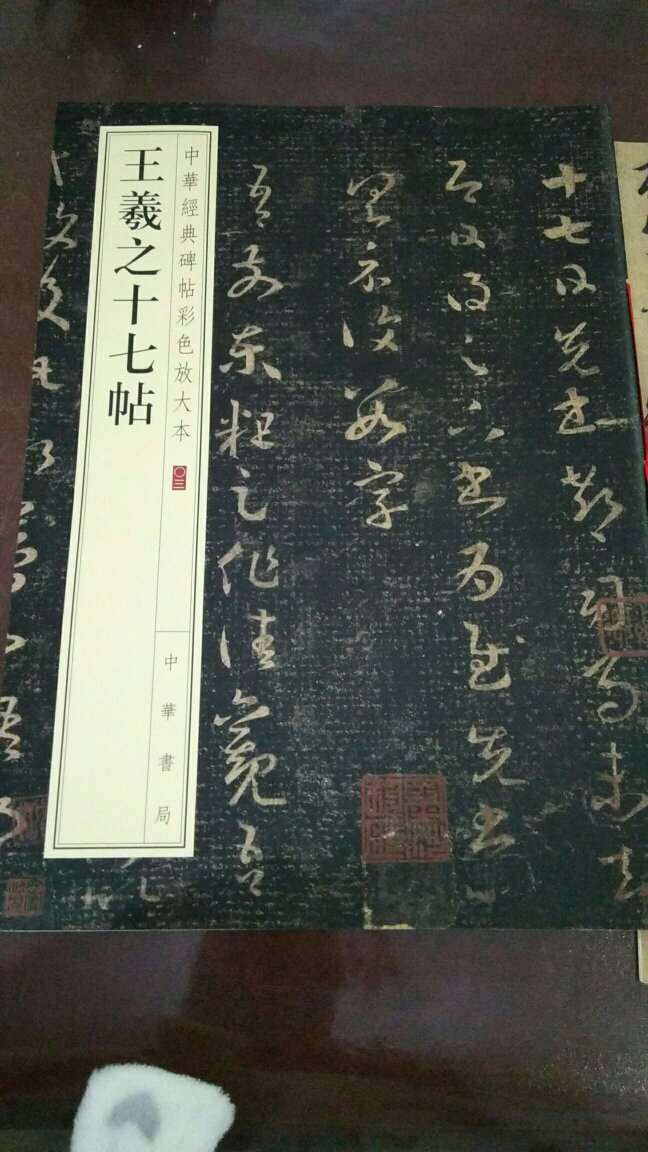 十七日先書郗司馬未去
即日得足下書為慰先書以
具示復數字
吾前東粗足作佳觀吾
中華經典碑帖彩色放大本 〇三
王羲之十七帖
中華書局